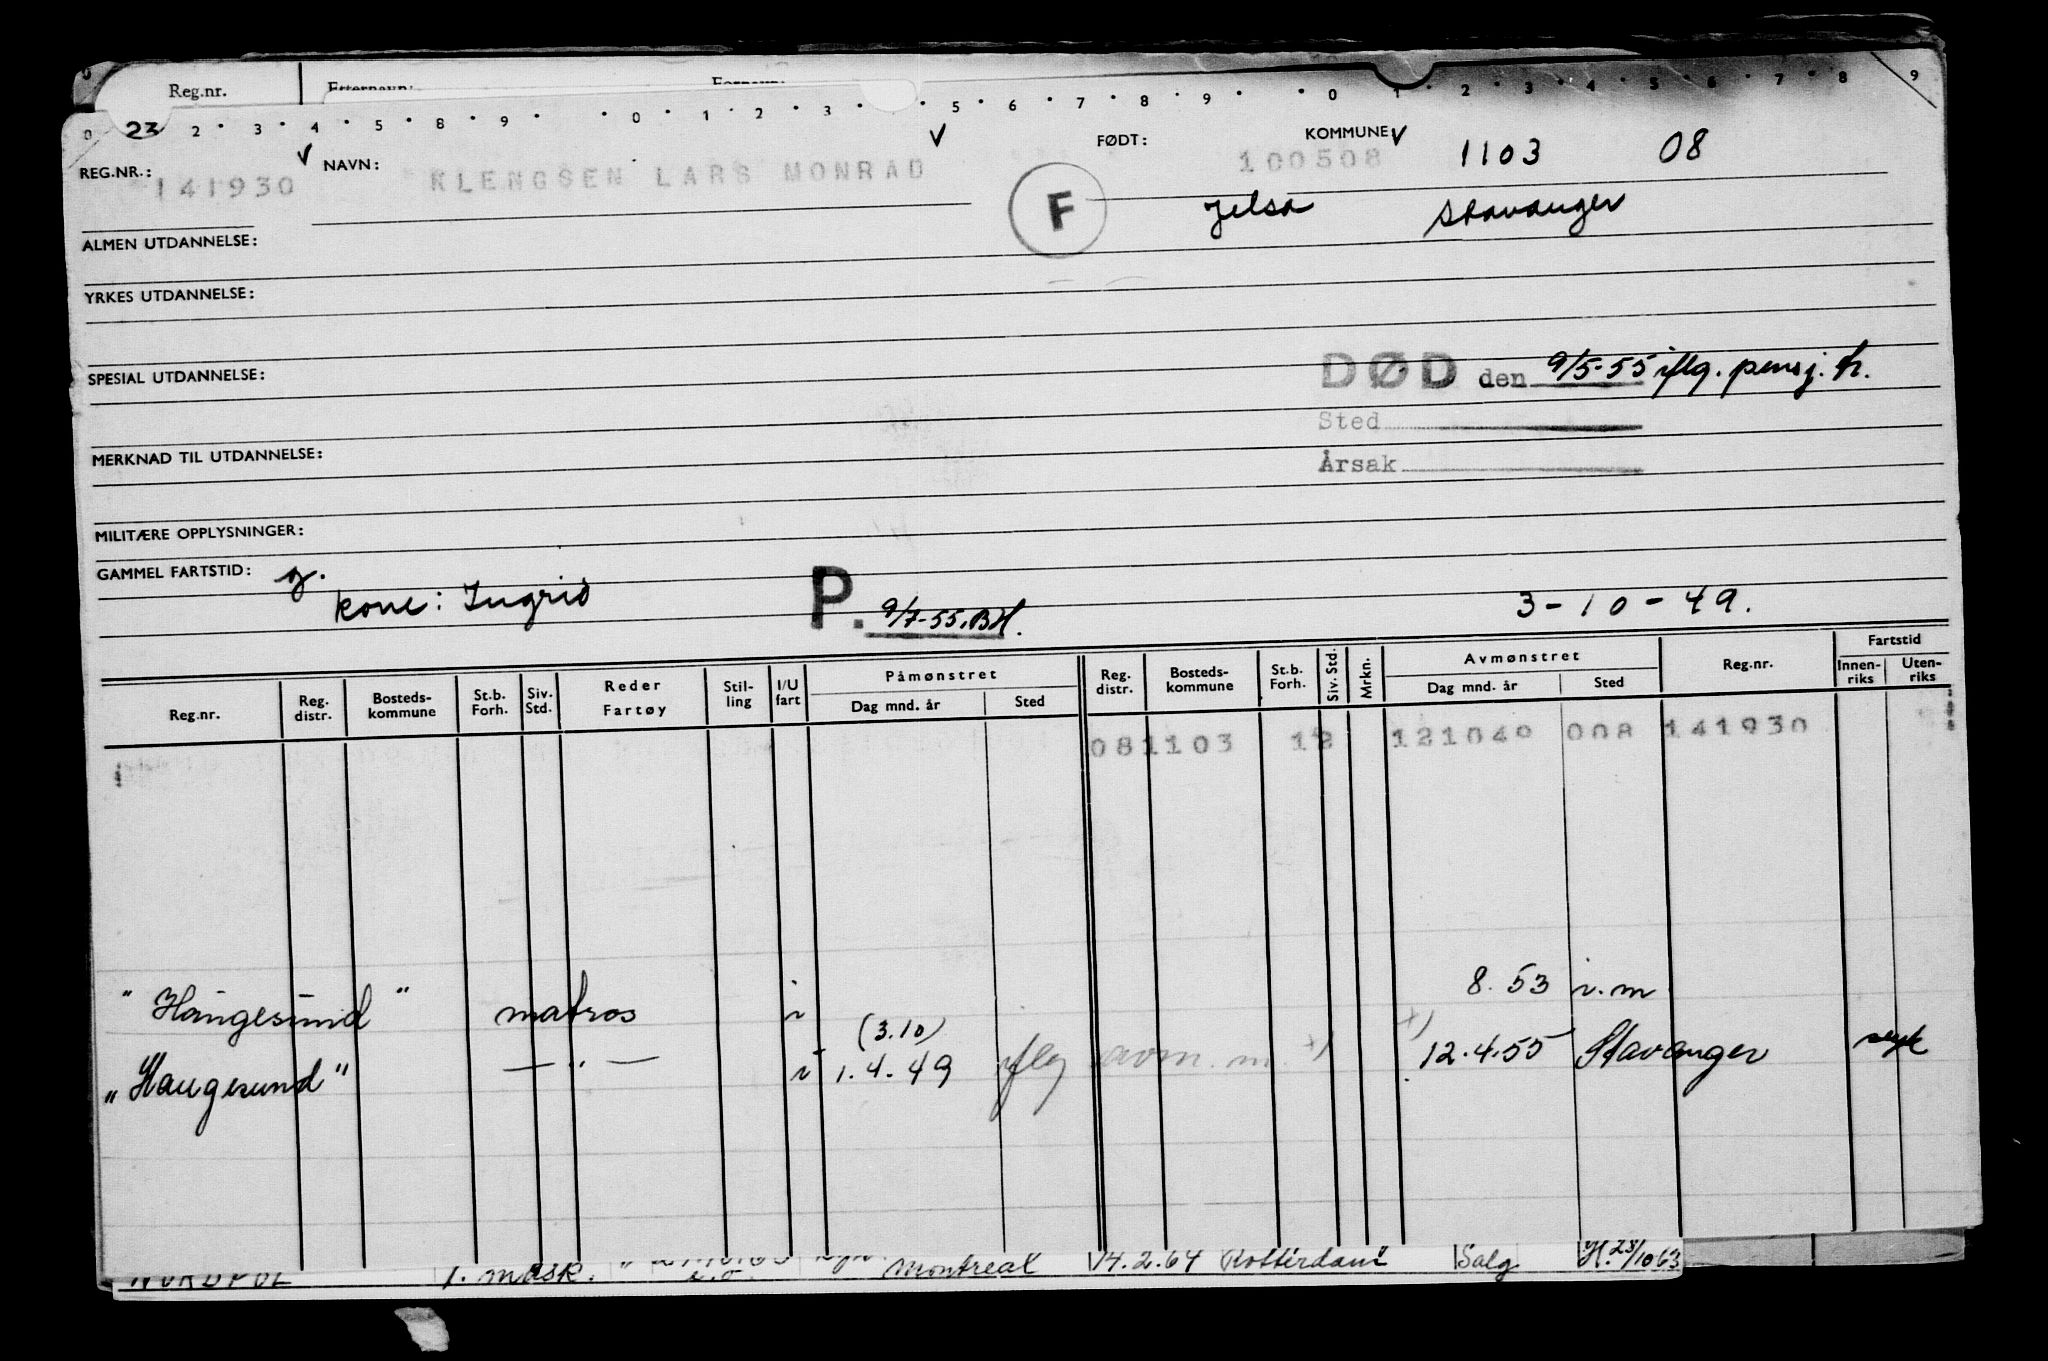 Reg.nr. Etternavn: Fornavn:
0 23 2 3 4 5 8 9 0 1 2 3 5 6 7 8 9 0 1 2 3 4 5 6 7 8 9
REG.NR.: 141930 NAVN: KLENGSEN LARS MONRAD FØDT: 100508 KOMMUNE 1103 08
F Jelsa Stavanger
ALMEN UTDANNELSE:
YRKES UTDANNELSE:
SPESIAL UTDANNELSE: DØD den 9/5-55 iflg. pensj. tr.
Sted
MERKNAD TIL UTDANNELSE: Årsak
MILITÆRE OPPLYSNINGER:
GAMMEL FARTSTID: g.
kone: Ingrid P. 9/7-55. BH. 3-10-49.
Reg.nr. Reg. distr. Bosteds-kommune St.b. Forh. Siv. Std. Reder Fartøy Stil-ling I/U fart Påmønstret Dag mnd. år Sted Reg. distr. Bosteds-kommune St.b. Forh. Siv. Std. Mrkn. Avmønstret Dag mnd. år Sted Reg.nr. Fartstid Innen-riks Uten-riks
081103 12 121049 008 141930
"Haugesund" matros i 8.53 i.m
"Haugesund" — " — i (3.10) 1.4.49 iflg avm. m. x) x) 12.4.55 Stavanger syk
NORDPOL 1. mask. Montreal 14.2.64 Rotterdam Salg H. 28/10 63